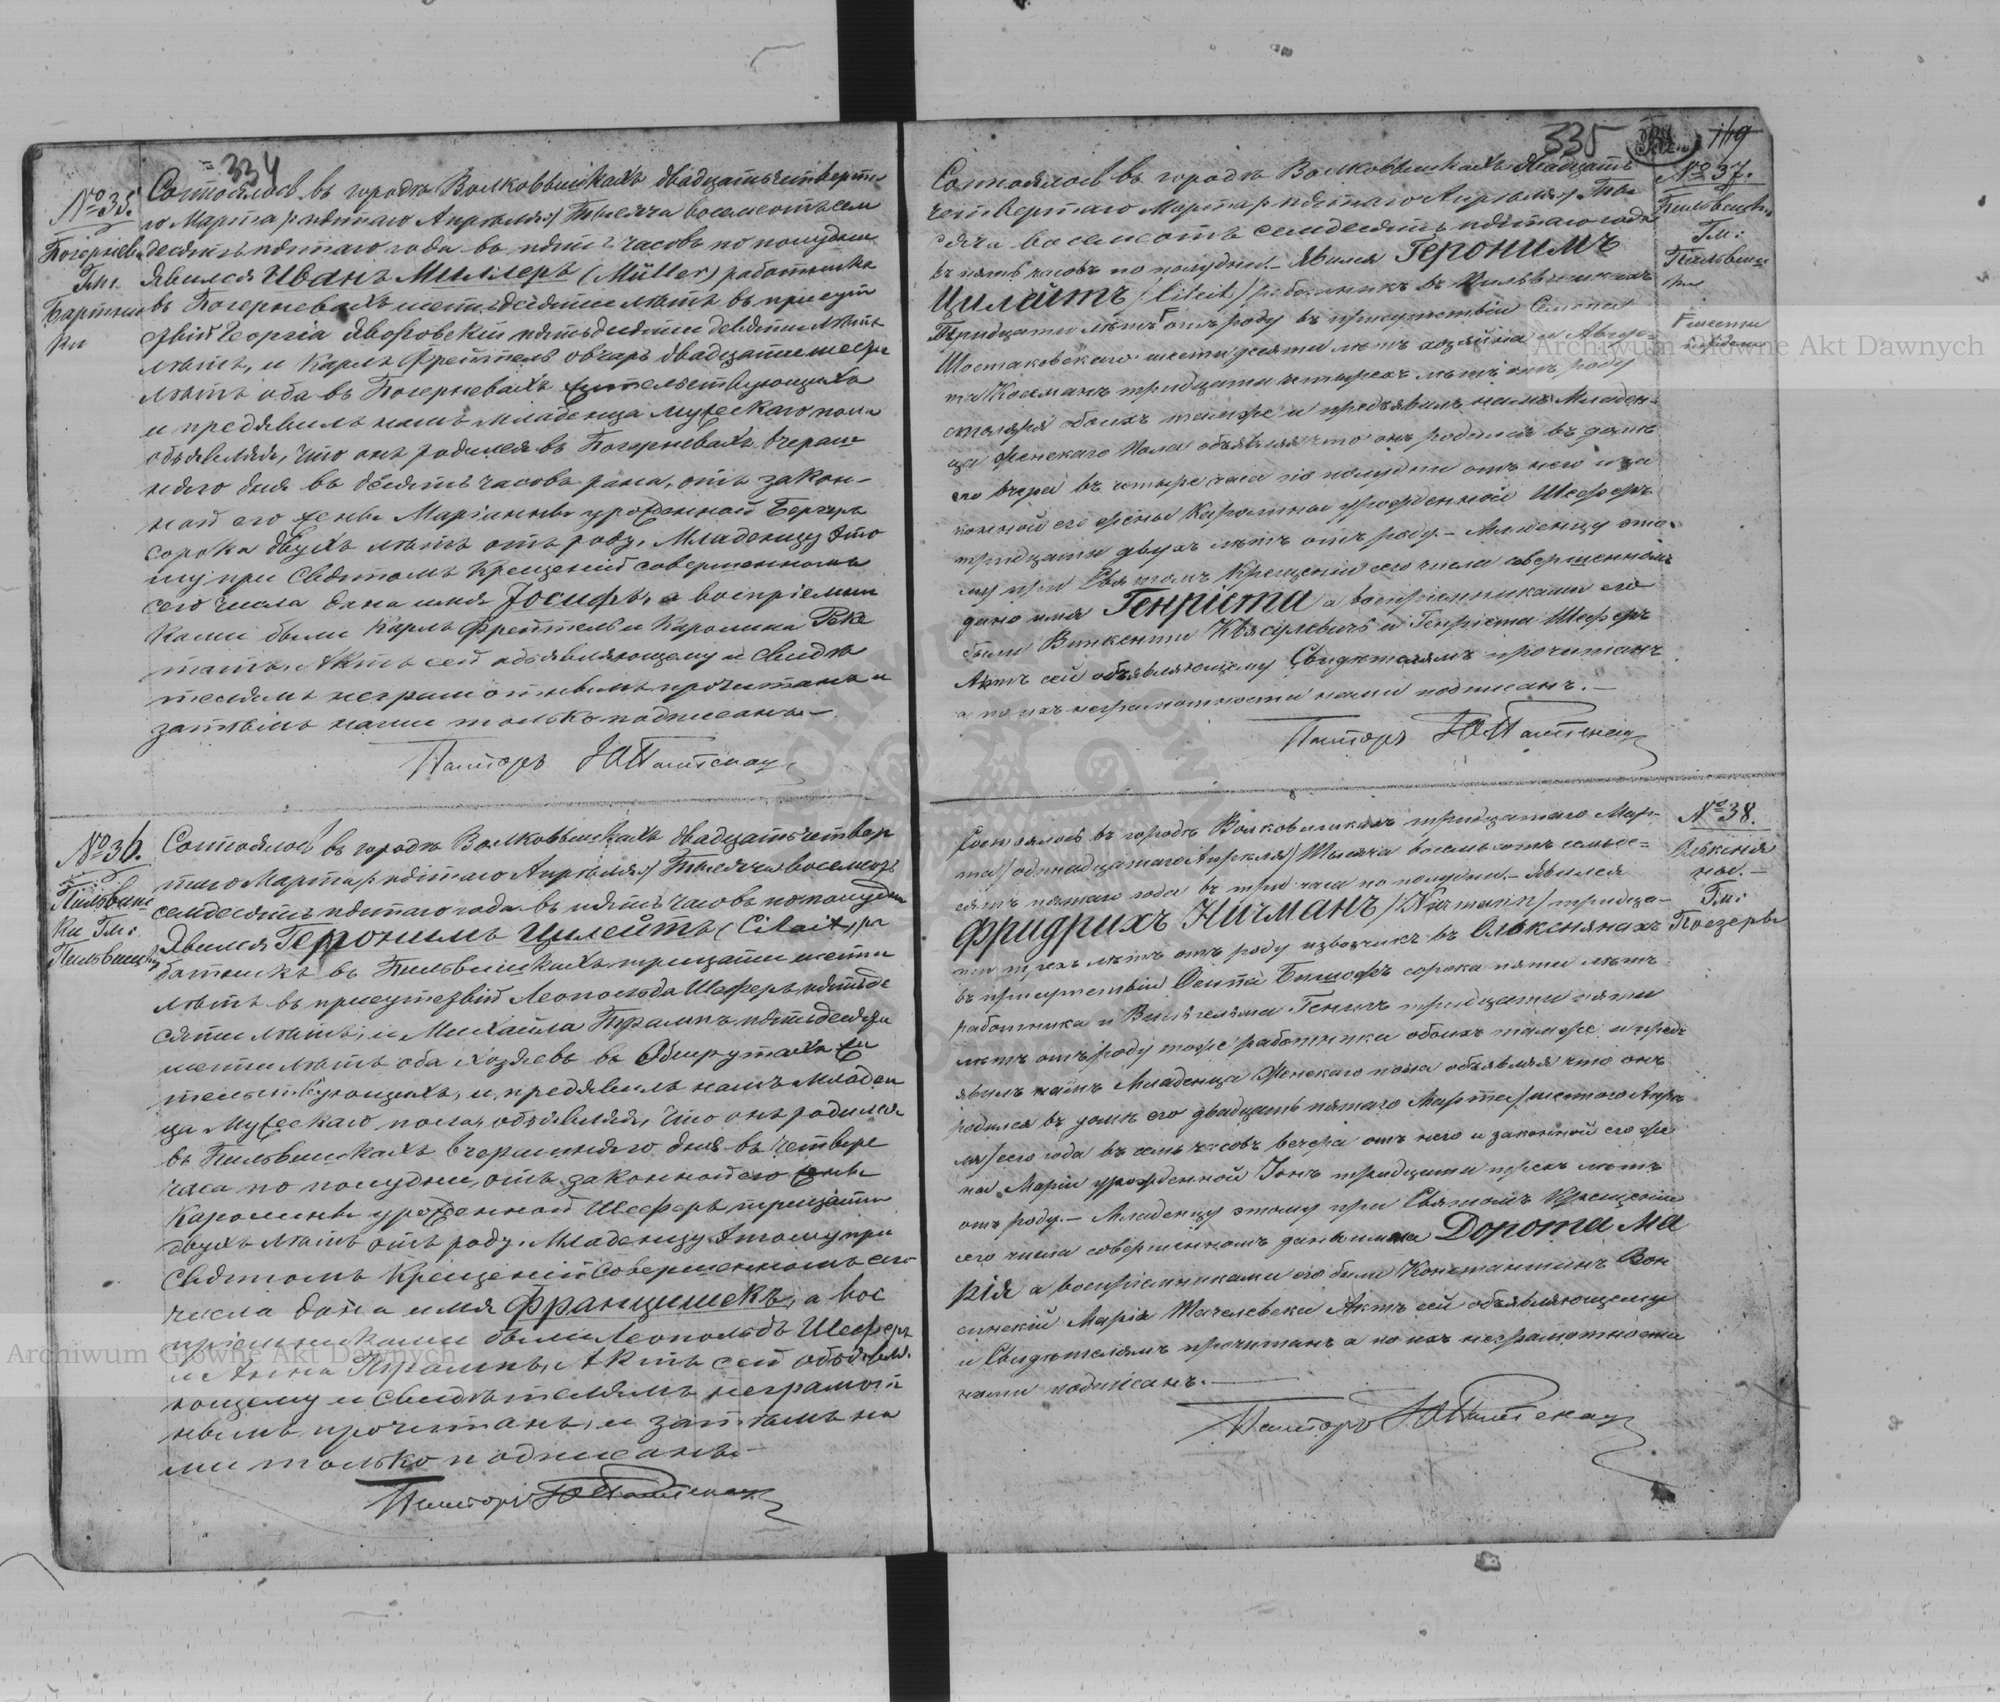 334
№ 35.
Погерневы
Гм.
Бартни
ки
Состоялось въ городѣ Волковышкахъ двадцать четверта
го Марта /: пятаго Апрѣля :/ Тысяча восемсотъ семь
десятъ пятаго года въ пять часовъ по полудни
Явился Иванъ Миллеръ (Müller) работникъ
въ Погерневахъ шестидесяти лѣтъ въ присут
ствіи Георгія Яворовскій пятьдесяти девяти лѣтъ
лѣтъ, и Карлъ Фрейтель овчаръ двадцати шести
лѣтъ оба въ Погерневахъ жительствующихъ
и предявилъ намъ младенца мужескаго пола
объявляя, что онъ родился въ Погерневахъ вчераш
няго дня въ десять часовъ рана, отъ закон-
ной его жены Маріанны урожденной Бергеръ
сорока двухъ лѣтъ отъ роду. Младенцу это
му при Святомъ Крещеніи совершенномъ
сего числа дана имя Іосифъ, а воспріемни
ками были Карлъ Фрейтель и Каролина
Актъ сей объявляющему и Свидѣ
телямъ неграмотнымъ прочитанъ и
затѣмъ нами только подписанъ.—
Пасторъ
№ 36.
Пильвиш
ки Гм:
Пильвишки
Состоялось въ городѣ Волковышкахъ двадцать четвер
таго Марта /: пятаго Апрѣля :/ Тысяча восемсотъ
семдесятъ пятаго года въ пять часовъ по полудни
Явился Геронимъ Цилейтъ (Cilait) ра
ботникъ въ Пильвишкахъ тридцати шести
лѣтъ въ присутствіи Леопольда Шеферъ пятьде
сяти лѣтъ, и Михаила Трампъ пятьдесяти
шести лѣтъ оба хозяевъ въ Обшрутахъ жи
тельствующихъ, и предявилъ намъ младен
ца мужескаго пола, объявляя, что онъ родился
въ Пильвишкахъ вчерашняго дня въ четвере
часа по полудни, отъ законной его жены
Каролины урожденной Шеферъ тридцати
двухъ лѣтъ отъ роду. Младенцу этому при
Святомъ Крещеніи совершенномъ сего
числа дана имя Францишекъ, а вос
пріемниками были Леопольдъ Шеферъ
и Анна Трампъ, Актъ сей объявля
ющему и свидѣтелямъ неграмот
нымъ прочитанъ, и затѣмъ на
ми только подписанъ.—
Пасторъ
335
169
№ 37.
Пильвишки
Гм:
Пильвиш
ки
шести
Состоялось въ городѣ Волковышкахъ двадцать
четвертаго Марта /: пятаго Апрѣля :/ Ты
сяча восемсотъ семдесятъ пятаго года
въ пять часовъ по полудни.— Явился Геронимъ
Цилейтъ /Cileit/ работникъ въ Пильвишкахъ
Тридцати лѣтъ отъ роду въ присутствіи Семена
Шостаковскаго шестидесяти лѣтъ хозяина и Авгус
та Косманъ тридцати четырехъ лѣтъ отъ роду
столяра обоихъ тамже и предъявилъ намъ Младен-
ца Женскаго Пола объявляя что онъ родился въ домѣ
его вчера въ четыре часа по полудни отъ него и за
конной его жены Каролины урожденной Шеферъ
тридцати двухъ лѣтъ отъ роду.— Младенцу это-
му при Святомъ Крещеніи сего числа совершенномъ
дано имя Генріета а воспріемниками его
были Викентій и Генріета Шеферъ
Актъ сей объявляющему Свидѣтелямъ прочитанъ
а по ихъ неграмотности нами подписанъ.—
Пасторъ
№ 38.
Гм:
Поезеры
Состоялось въ городѣ Волковышкахъ тридцатаго Мар-
та /одинадцатаго Апрѣля/ Тысяча восемьсотъ семьде=
сятъ пятаго года въ три часа по полудни.— Явился
Фридрихъ Ничманъ /Nitzmann/ тридца-
ти трехъ лѣтъ отъ роду извозчикъ въ Олексянахъ
въ присутствіи Осипа Бишофъ сорока пяти лѣтъ
работника и Вильгельма Генигъ тридцати пяти
лѣтъ отъ роду тоже работника обоихъ тамже и предъ
явилъ намъ Младенца Женскаго пола объявляя что онъ
родился въ домѣ его двадцать пятаго Марта /шестаго Апрѣ
ля/ сего года въ семь часовъ вечера отъ него и законной его же
ны Маріи урожденной Іонъ тридцати трехъ лѣтъ
отъ роду.— Младенцу этому при Святомъ Крещеніи
сего числа совершенномъ даны имена Дорота Ма
рія а воспріемниками его были Константинъ Вон
синскій Марія Актъ сей объявляющему
и Свидѣтелямъ прочитанъ а по ихъ неграмотности
нами подписанъ.—
Пасторъ
Archiwum Główne Akt Dawnych
Archiwum Główne Akt Dawnych